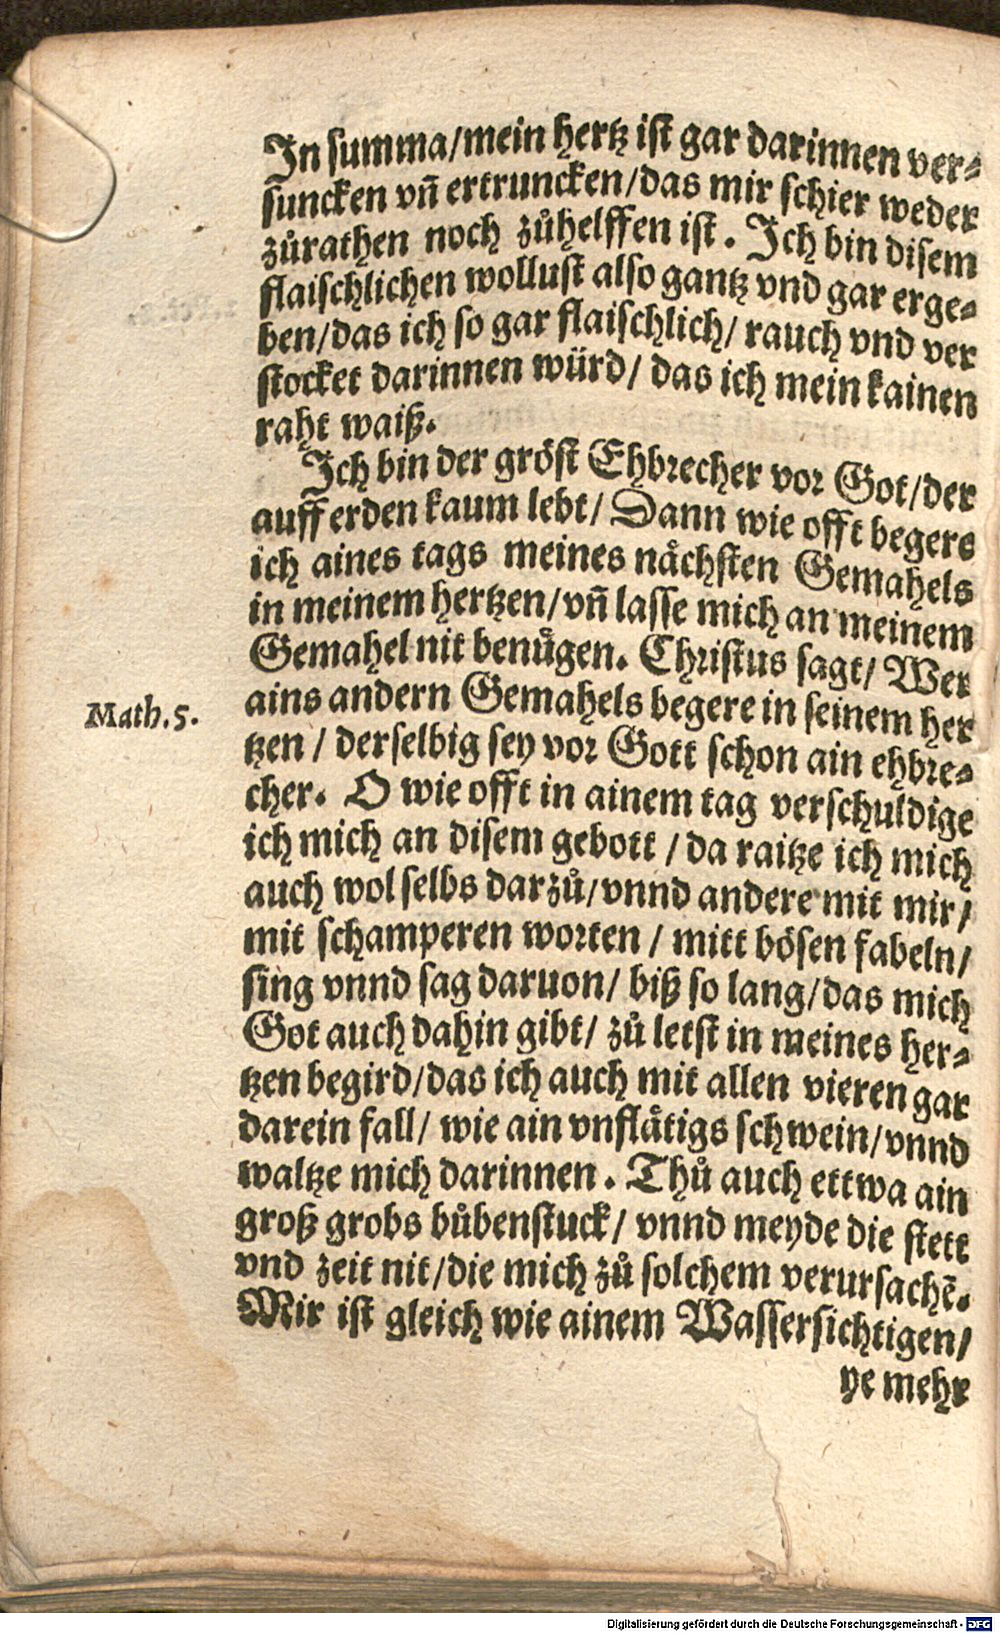 In summa/mein hertz ist gar darinnen ver⸗
suncken vn̄ ertruncken/das mir schier weder
zůrathen noch zůhelffen ist. Ich bin disem
flaischlichen wollust also gantz vnd gar erge⸗
ben/das ich so gar flaischlich/ rauch vnd ver
stocket darinnen würd/ das ich mein kainen
raht waiß.
Ich bin der gröst Ehbrecher vor Got/der
auff erden kaum lebt/ Dann wie offt begere
ich aines tags meines nåchsten Gemahels
in meinem hertzen/vn̄ lasse mich an meinem
Gemahel nit benůgen. Christus sagt/ Wer
Math.5.
ains andern Gemahels begere in seinem her
tzen / derselbig sey vor Gott schon ain ehbre⸗
cher. O wie offt in ainem tag verschuldige
ich mich an disem gebott / da raitze ich mich
auch wol selbs darzů/vnnd andere mit mir/
mit schamperen worten / mitt bösen fabeln/
sing vnnd sag daruon/ biß so lang/das mich
Got auch dahin gibt/ zů letst in meines her⸗
tzen begird/das ich auch mit allen vieren gar
darein fall/ wie ain vnflåtigs schwein/vnnd
waltze mich darinnen. Thů auch ettwa ain
groß grobs bůbenstuck/ vnnd meyde die stett
vnd zeit nit/die mich zů solchem verursachē.
Mir ist gleich wie ainem Wassersichtigen/
ye mehr
Digitalisierung gefördert durch die Deutsche Forschungsgemeinschaft - DFG